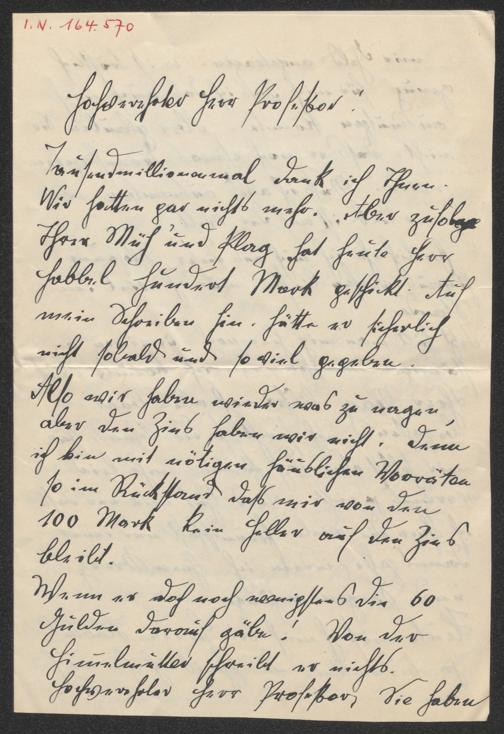 I.N. 164.570
Hochverehrter Herr Professor!
Tausendmillionenmal dank ich Ihnen.
Wir hatten gar nichts mehr. Aber zufolge
Ihrer Müh' und Plag hat heute Herr
Habbel hundert Mark geschickt. Auf
mein Schreiben hin hätte er sicherlich
nicht sobald und soviel gegeben.
Also wir haben wieder was zu nagen,
aber den Zins haben wir nicht. Denn
ich bin mit nötigen häuslichen Vorräten
so im Rückstand daß mir von den
100 Mark kein Heller auf den Zins
bleibt.
Wenn er doch noch wenigstens die 60
Gulden darauf gäbe! Von der
Himmelmutter schreibt er nichts.
Hochverehrter Herr Professor, Sie haben